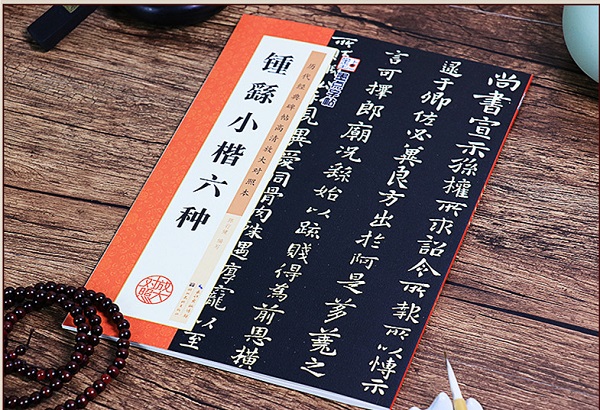 尚書宣示孫權所求詔令所報所以博示
逮于卿佐必冀良方出於阿是芻蕘之
言可擇郎廟況繇始以疏賤得為前恩橫
所
見異愛同骨肉殊遇厚寵以至
墨点字帖
历代经典碑帖高清放大对照本
锺繇小楷六种
放大对照